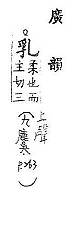 廣韻
乳
柔也而
主切三
上聲
(九麌 P263)